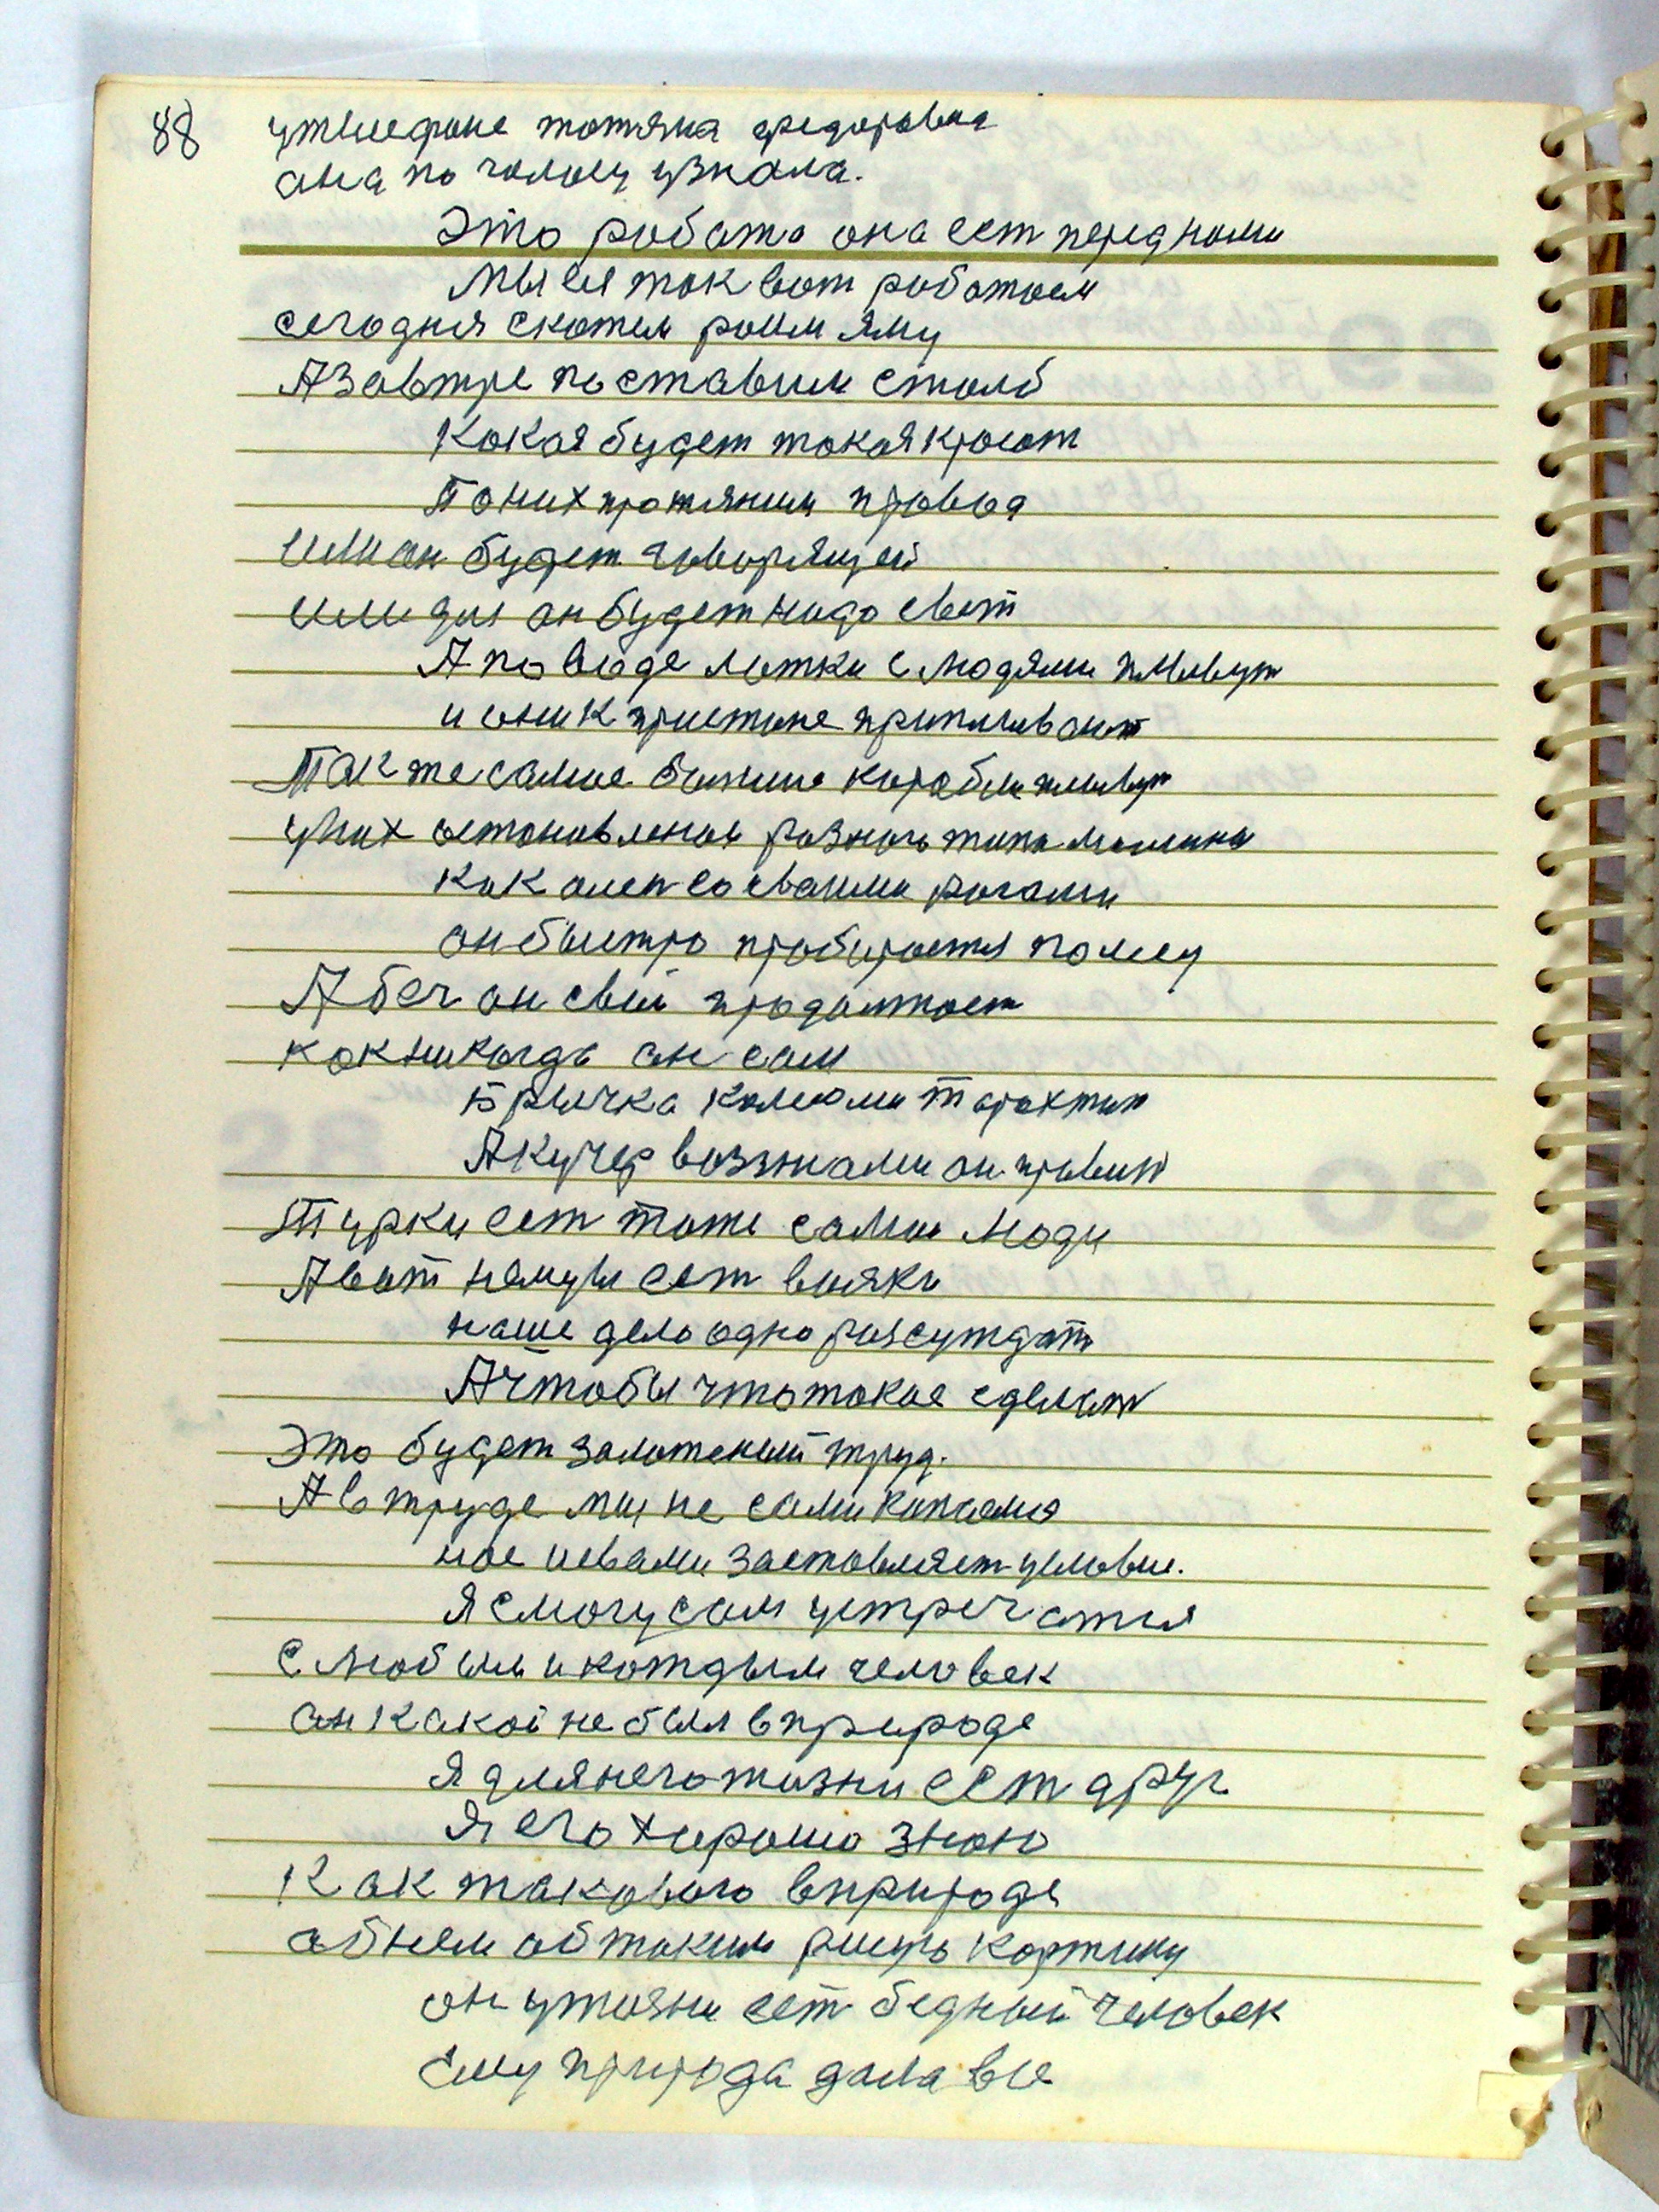 88 у телефоне татяна федоровна
она по голосу узнала.
Это работа она ест перед нами
мы ея так вот работаем
сегодня скажем роим яму
А завтре поставим столб
Какая будет такая красот
По них протяним провода
Или он будет говорящей
или для он будет надо свет
А по воде лотки с людями пливут
и они к пристане приплывают
Так же самое большие корабли пливут
у них остановленаи разного типа машины
как олен со своими рогами
он быстро пробирается по лесу
А бег он свой продолжает
как никогда он сам
Бричка колесами тарахтит
А кучер возжами он правит
Турки ест тоже самои люди
А вот немцы ест вояки
наше дело одно разсуждат
А чтобы что такое сделат
Это будет заложеный труд.
А в труде мы не сами капаемся
нас и свами заставляет условие.
Я смогу сам устречатся
С любым и каждым человек
он какой не был в природе
Я для него жизни ест друг
Я его хорошо знаю
Как такового в природе
об нем об таким рисую картину
он у жизни ест бедный человек
Ему природа дала все